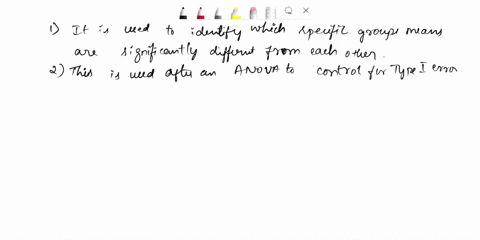 1) It is used to identify which specific groups means
are significantly different from each other.
2) This is used after an ANOVA to control for Type I error